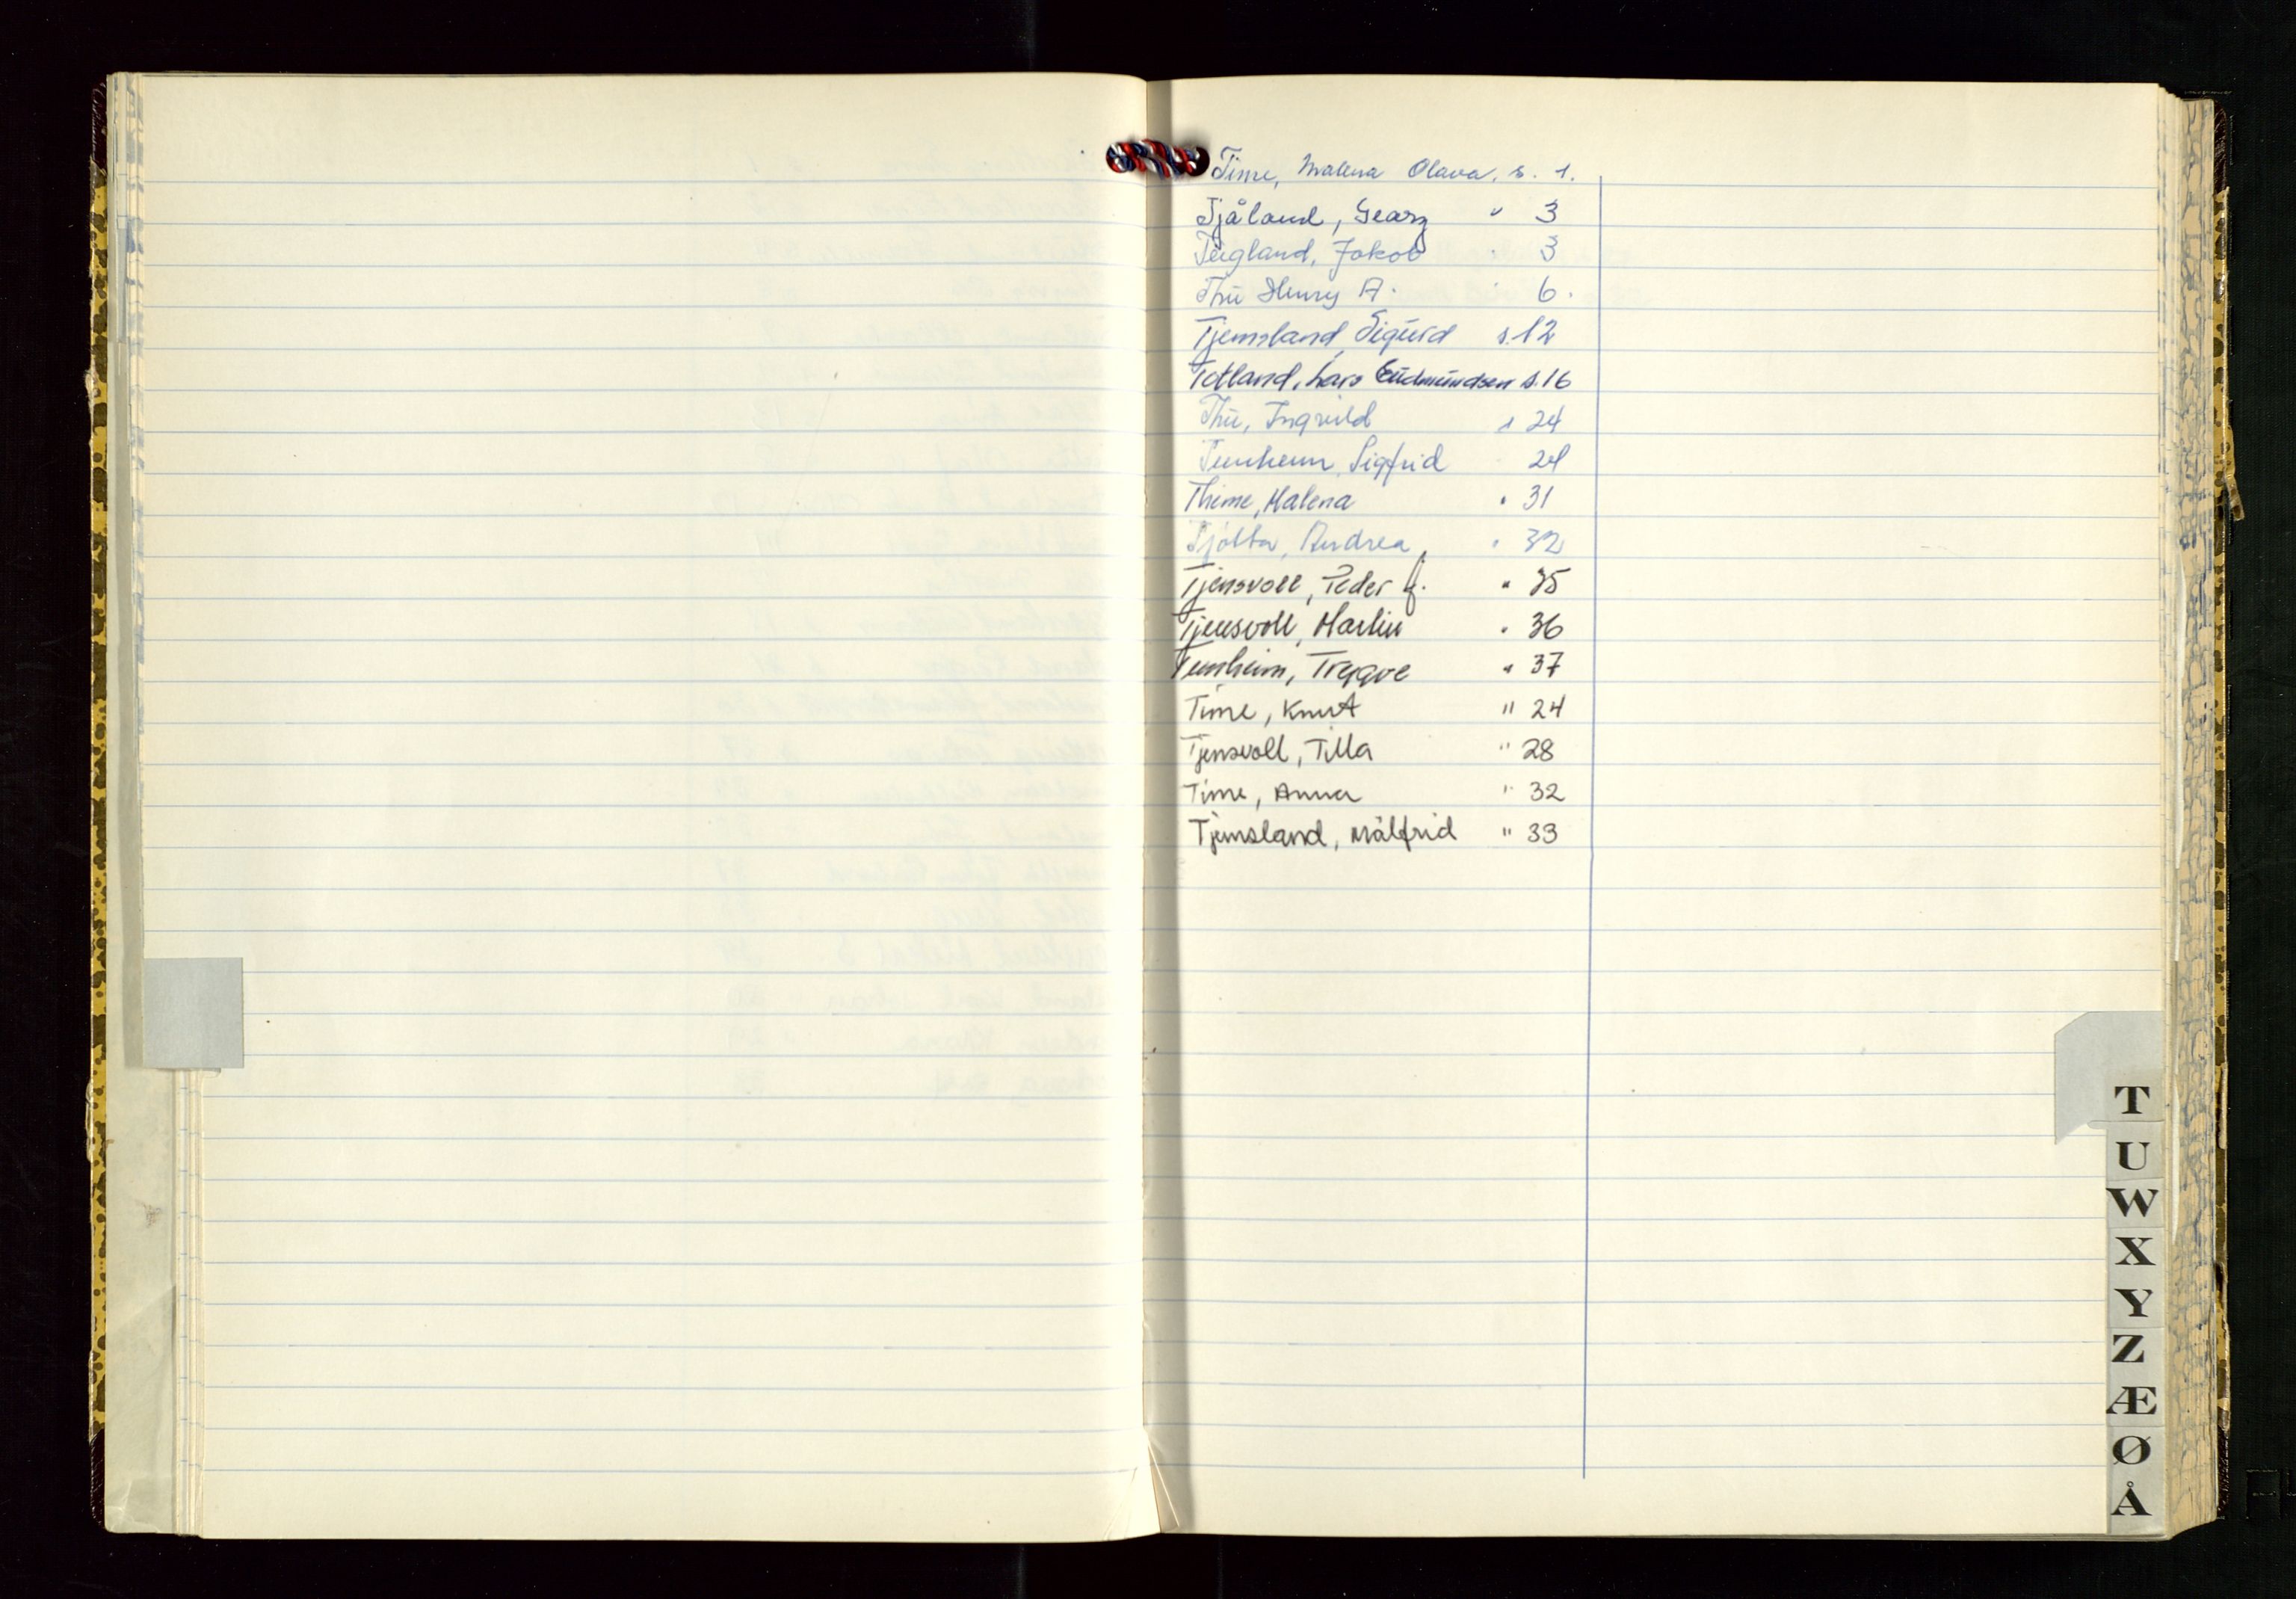 Time, Malena Olava, s. 1.
Tjåland, Georg " 3
Teigland, Jakob " 3
Thu Henry A. " 6.
Tjemsland, Sigurd s. 12
Totland, Lars Gudmundsen s. 16
Thu, Ingvild s 24
Tunheim, Sigfrid 24
Thime, Malena " 31
Tjøtta, Andrea, " 32
Tjensvoll, Peder J. " 35
Tjensvoll, Martin " 36
Tunheim, Trygve " 37
Time, Knut " 24
Tjensvoll, Tilla " 28
Time, Anna " 32
Tjemsland, Målfrid " 33
T
U
W
X
Y
Z
Æ
Ø
Å